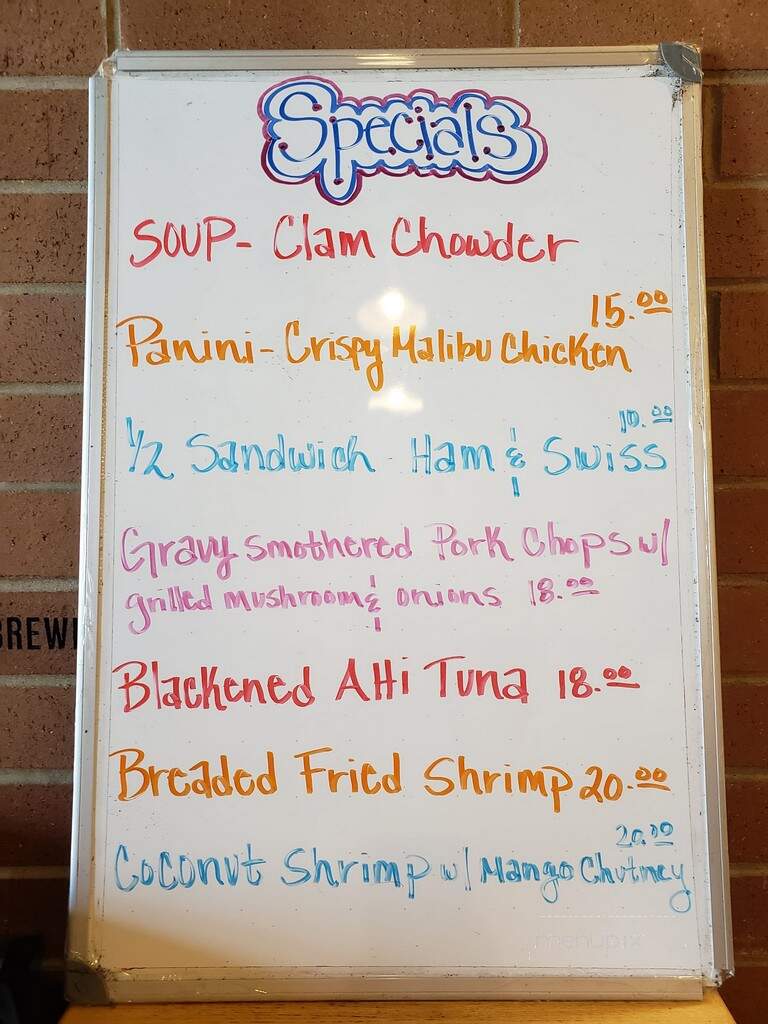 Specials
SOUP- Clam Chowder
15.00
Panini- Crispy Malibu Chicken
10.00
1/2 Sandwich Ham & Swiss
Gravy smothered Pork Chops w/
grilled mushroom & onions 18.00
BREWI
Blackened AHi Tuna 18.00
Breaded Fried Shrimp 20.00
20.00
Coconut Shrimp w/ Mango Chutney
menupix